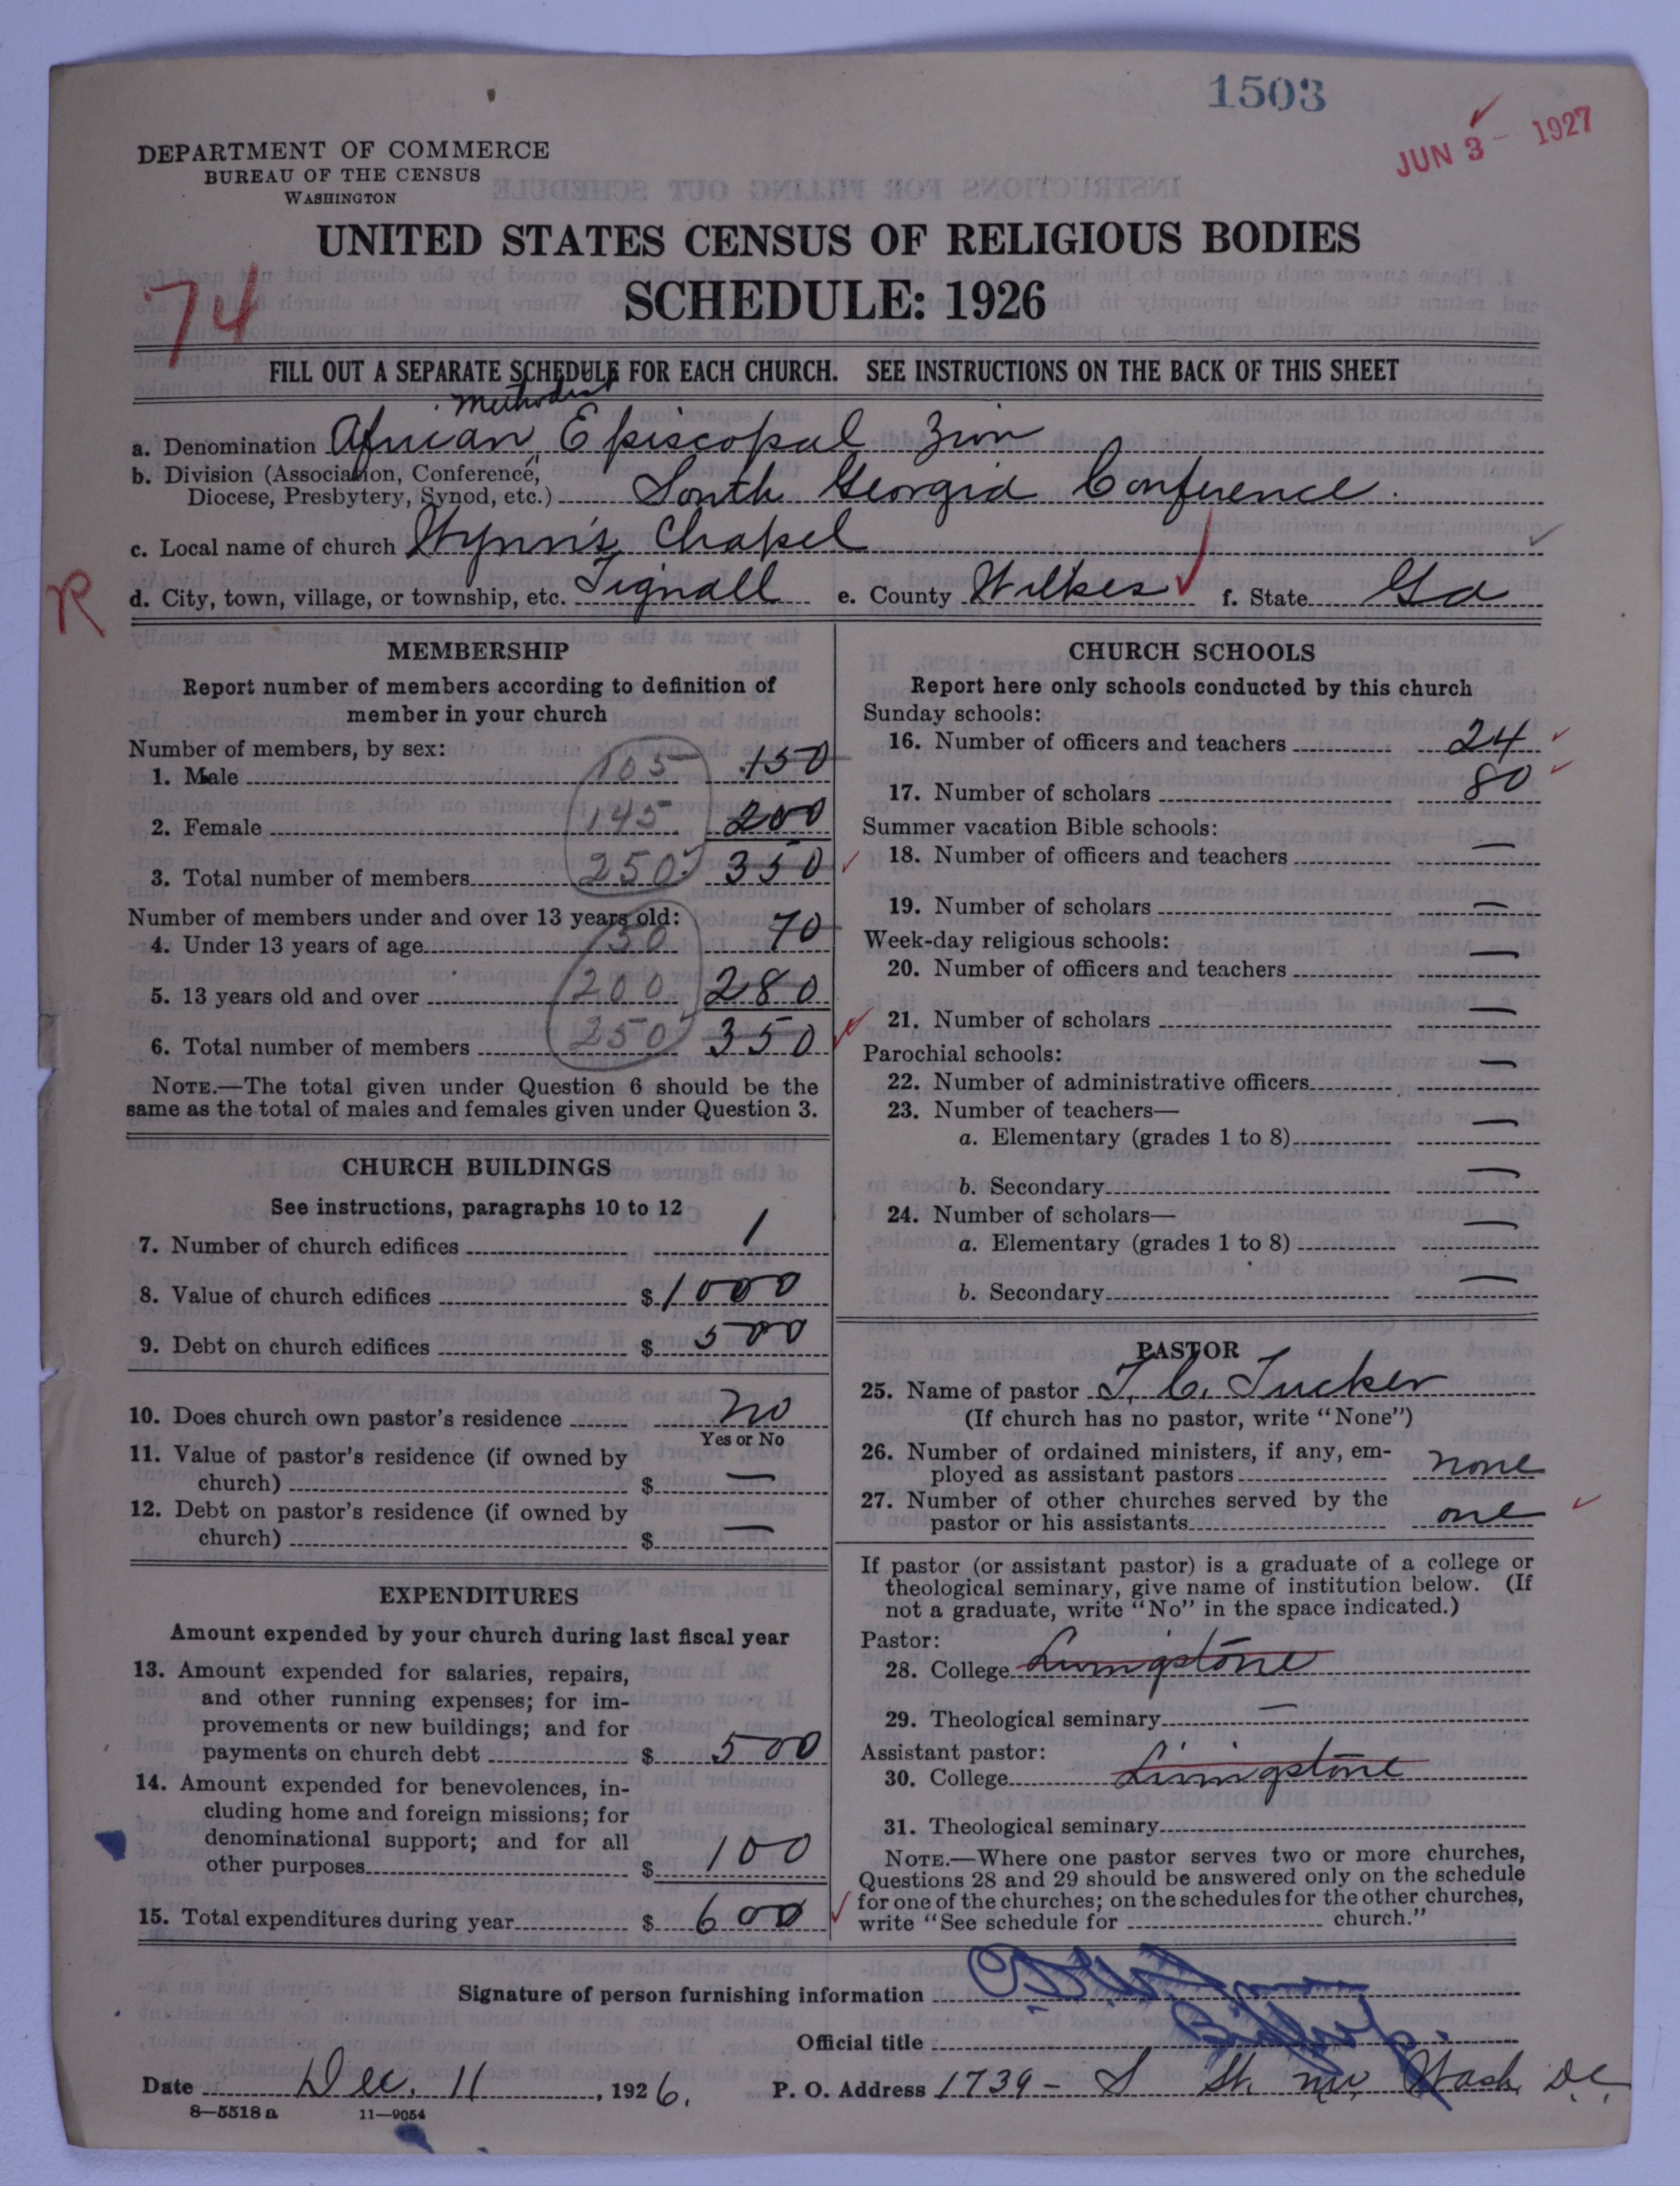 1503
JUN 3 - 1927
DEPARTMENT OF COMMERCE
BUREAU OF THE CENSUS
WASHINGTON
UNITED STATES CENSUS OF RELIGIOUS BODIES
SCHEDULE: 1926
74
FILL OUT A SEPARATE SCHEDULE FOR EACH CHURCH. SEE INSTRUCTIONS ON THE BACK OF THIS SHEET
Methodist
a. Denomination African Episcopal Zion
b. Division (Association, Conference,
Diocese, Presbytery, Synod, etc.) South Georgia Conference.
c. Local name of church Wynn's Chapel
R
d. City, town, village, or township, etc. Tignall e. County Wilkes f. State Ga
MEMBERSHIP
Report number of members according to definition of
member in your church
Number of members, by sex:
1. Male 105 150
2. Female 145 200
3. Total number of members 250 350
Number of members under and over 13 years old:
4. Under 13 years of age 50 70
5. 13 years old and over 200 280
6. Total number of members 250 350
NOTE.—The total given under Question 6 should be the
same as the total of males and females given under Question 3.
CHURCH BUILDINGS
See instructions, paragraphs 10 to 12
7. Number of church edifices 1
8. Value of church edifices $ 1000
9. Debt on church edifices $ 500
10. Does church own pastor's residence no
Yes or No
11. Value of pastor's residence (if owned by
church) $ —
12. Debt on pastor's residence (if owned by
church) $ —
EXPENDITURES
Amount expended by your church during last fiscal year
13. Amount expended for salaries, repairs,
and other running expenses; for im-
provements or new buildings; and for
payments on church debt $ 500
14. Amount expended for benevolences, in-
cluding home and foreign missions; for
denominational support; and for all
other purposes $ 100
15. Total expenditures during year $ 600
CHURCH SCHOOLS
Report here only schools conducted by this church
Sunday schools:
16. Number of officers and teachers 24
17. Number of scholars 80
Summer vacation Bible schools:
18. Number of officers and teachers —
19. Number of scholars —
Week-day religious schools:
20. Number of officers and teachers —
21. Number of scholars —
Parochial schools:
22. Number of administrative officers —
23. Number of teachers—
a. Elementary (grades 1 to 8) —
b. Secondary —
24. Number of scholars—
a. Elementary (grades 1 to 8) —
b. Secondary —
PASTOR
25. Name of pastor T. C. Tucker
(If church has no pastor, write "None")
26. Number of ordained ministers, if any, em-
ployed as assistant pastors none
27. Number of other churches served by the
pastor or his assistants one
If pastor (or assistant pastor) is a graduate of a college or
theological seminary, give name of institution below. (If
not a graduate, write "No" in the space indicated.)
Pastor:
28. College Livingstone
29. Theological seminary —
Assistant pastor:
30. College Livingstone
31. Theological seminary
NOTE.—Where one pastor serves two or more churches,
Questions 28 and 29 should be answered only on the schedule
for one of the churches; on the schedules for the other churches,
write "See schedule for church."
Signature of person furnishing information
Official title Bishop
Date Dec. 11, 1926. P. O. Address 1739 - S St. nw, Wash, D.C.
8—5518 a 11—9054